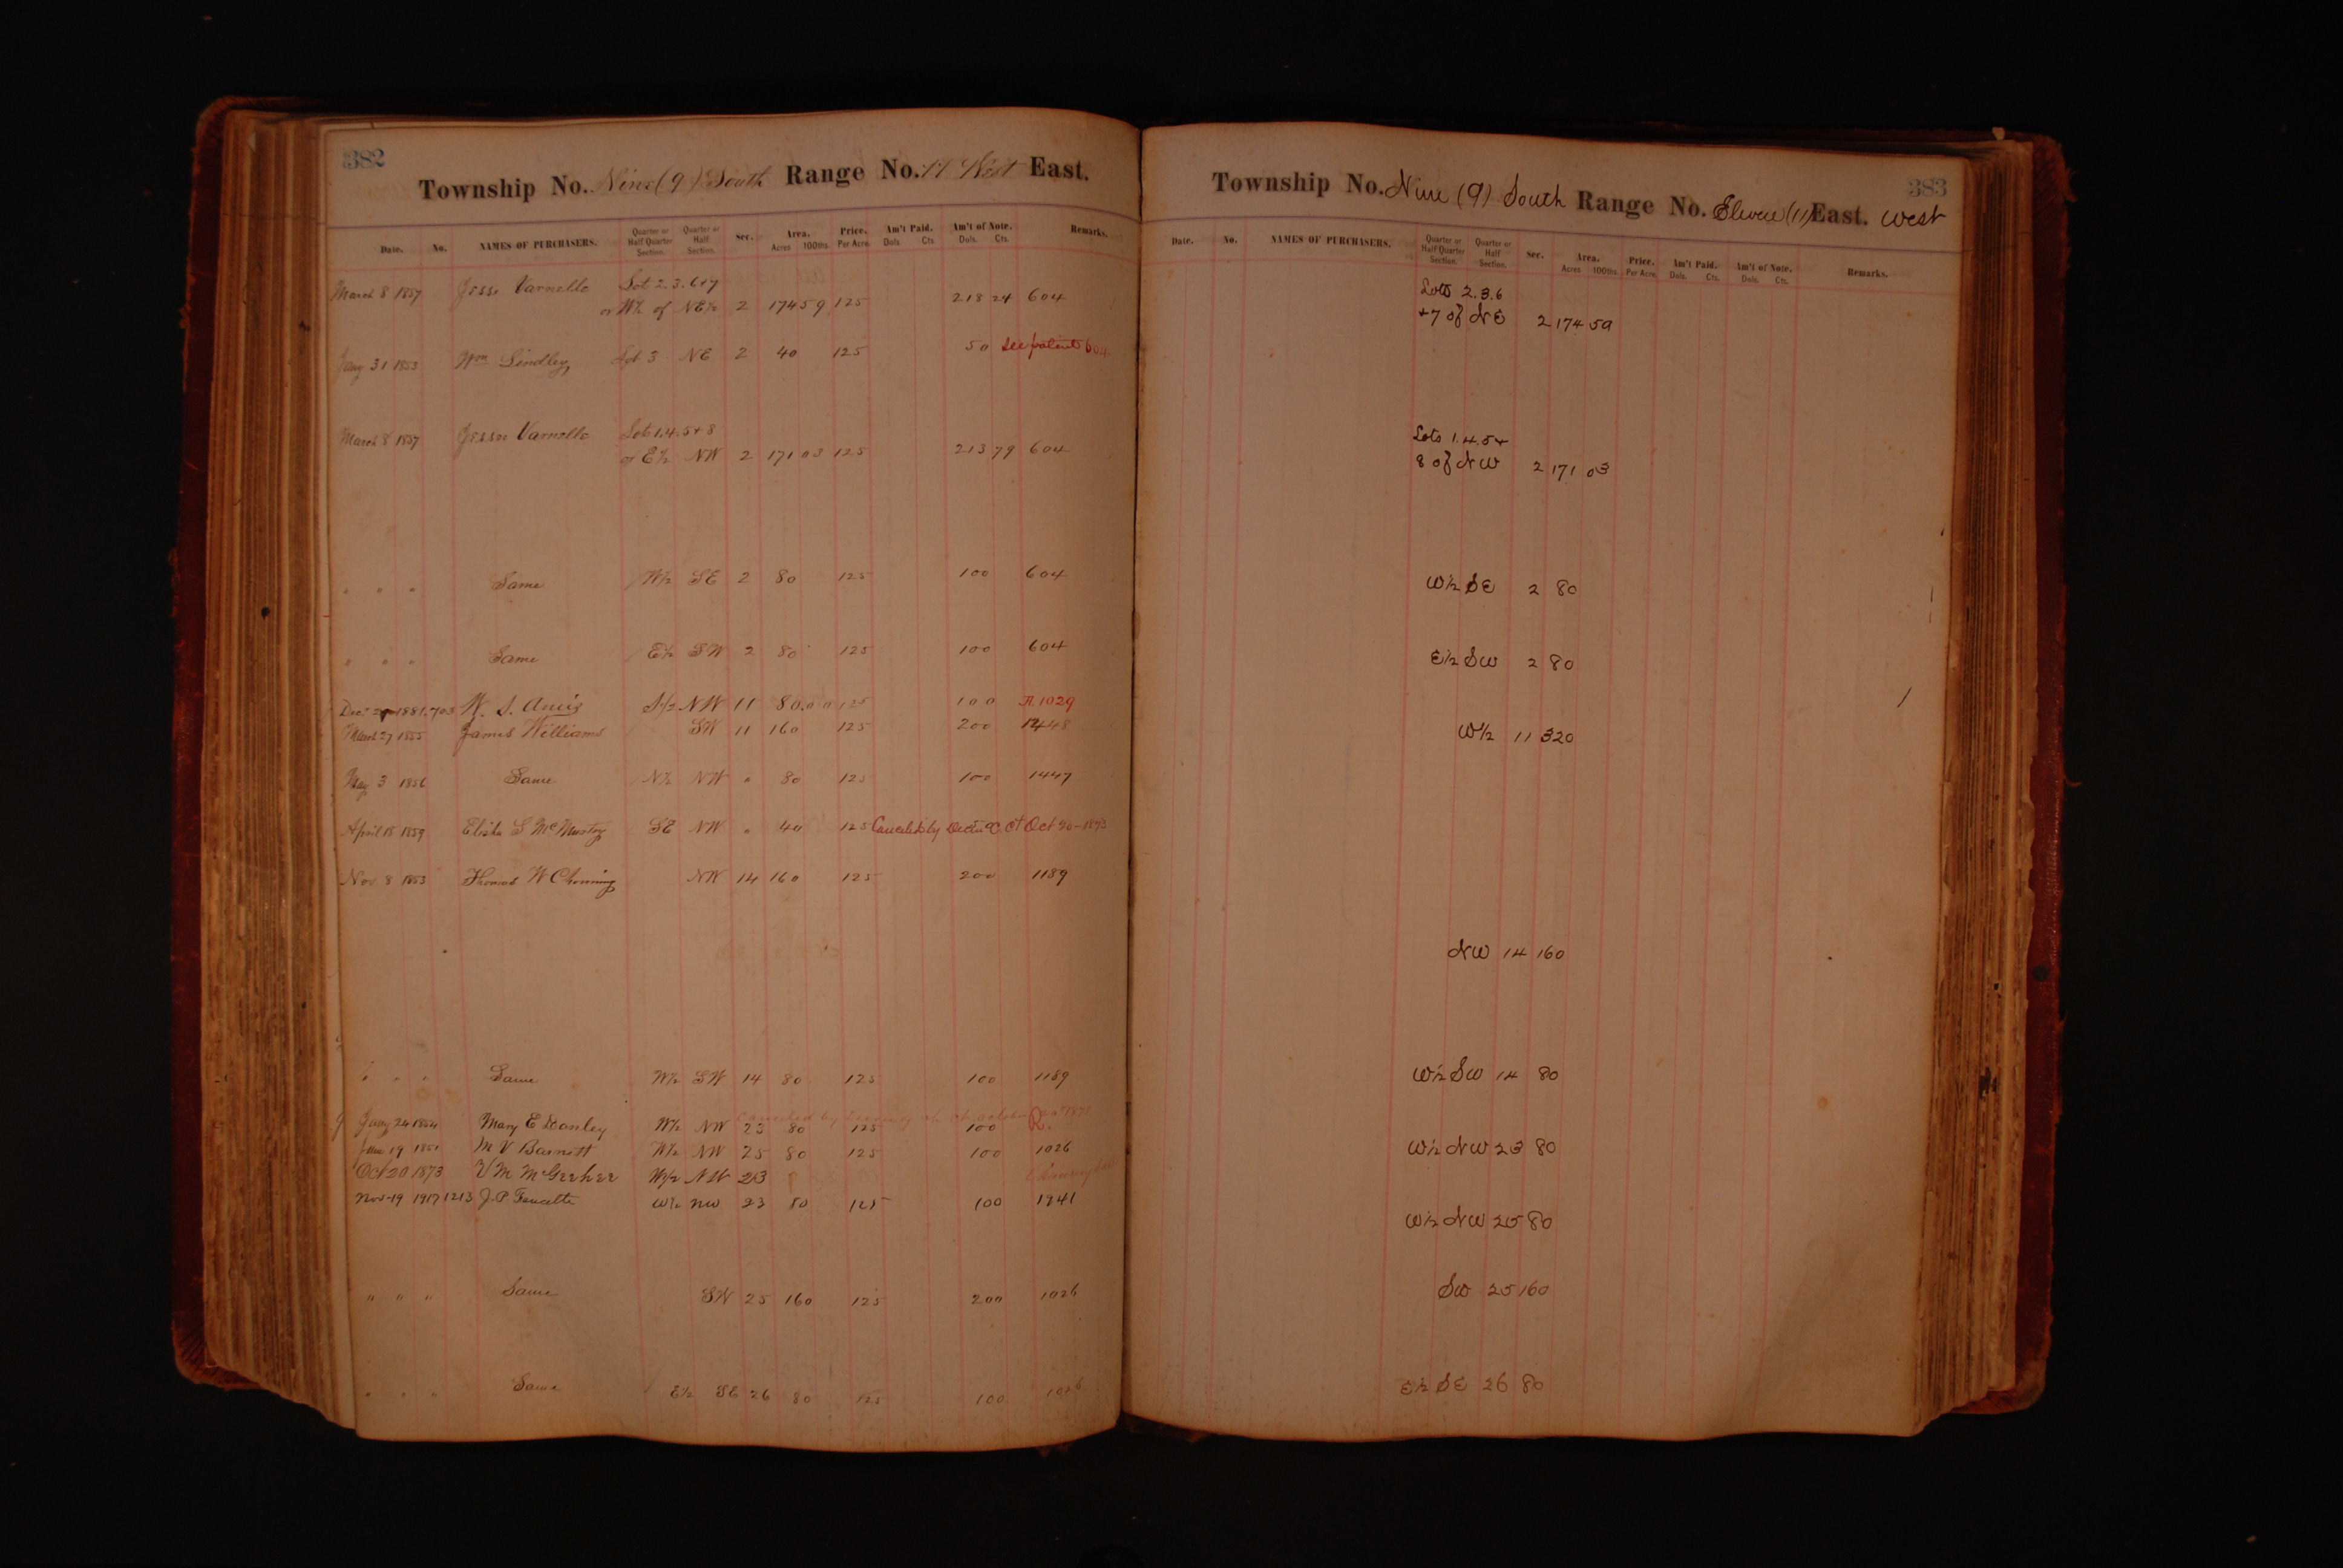 382
Township No. Nine (9) South Range No. 11 West East.
Date. No. NAMES OF PURCHASERS. Quarter or Half Quarter Section. Quarter or Half Section. Sec. Area. Acres 100ths. Price. Per Acre. Am't Paid. Dols. Cts. Am't of Note. Dols. Cts. Remarks.
March 8 1857 Jesse Varnelle Lot 2.3.6+7
or W½ of NE½ 2 174 59 125 218 24 604
Jany 31 1853 Wm Lindley Lot 3 NE 2 40 125 50 see patent 604
March 8 1857 Jesse Varnelle Lots 1.4.5+8
or E½ NW 2 171 03 125 213 79 604
" " " Same W½ SE 2 80 125 100 604
" " " Same E½ SW 2 80 125 100 604
Dec 1881. 703 W. S. Amis S½ NW 11 80.00 125 100 A. 1029
March 27 1855 James Williams SW 11 160 125 200 1448
May 3 1856 Same N½ NW " 80 125 100 1447
April 18 1859 Elisha S McMurtry SE NW " 40 125 Canceled by Oct 20-1873
Nov 8 1853 Thomas W Channing NW 14 160 125 200 1189
" " " Same W½ SW 14 80 125 100 1189
Canceled by
Jany 24 1854 Mary E Danley W½ NW 23 80 125 100 R.
June 19 1851 M V Barnett W½ NW 25 80 125 100 1026
Oct 20 1873 V M McGeehee W½ NW 23
Nov-19 1917 1213 J.P. Faucette W½ NW 23 80 125 100 1941
" " " Same SW 25 160 125 200 1026
" " " Same E½ SE 26 80 125 100 1026
383
Township No. Nine (9) South Range No. Eleven (11) East. West
Date. No. NAMES OF PURCHASERS. Quarter or Half Quarter Section. Quarter or Half Section. Sec. Area. Acres 100ths. Price. Per Acre. Am't Paid. Dols. Cts. Am't of Note. Dols. Cts. Remarks.
Lots 2.3.6
+7 of NE 2 174 59
Lots 1.4.5+
8 of NW 2 171 03
W½ SE 2 80
E½ SW 2 80
W½ 11 320
NW 14 160
W½ SW 14 80
W½ NW 23 80
W½ NW 25 80
SW 25 160
E½ SE 26 80